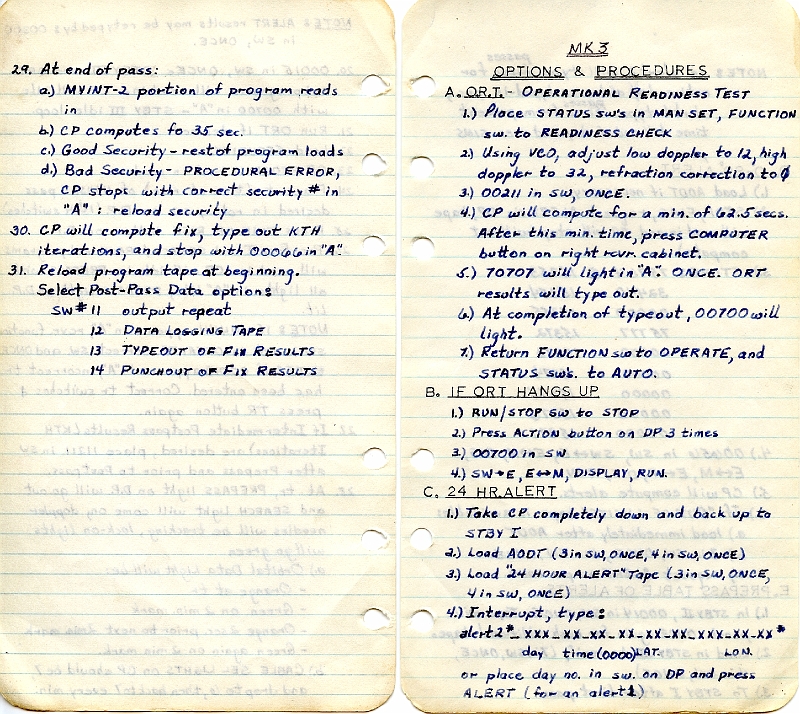 29. At end of pass:
a.) MVINT-2 portion of program reads
in
b.) CP computes fo 35 sec.
c.) Good Security - rest of program loads
d.) Bad Security - PROCEDURAL ERROR,
CP stops with correct security # in
"A" : reload security
30. CP will compute fix, type out KTH
iterations, and stop with 00066 in "A".
31. Reload program tape at beginning.
Select Post-Pass Data option:
SW# 11 output repeat
12 DATA LOGGING TAPE
13 TYPEOUT OF FIX RESULTS
14 PUNCHOUT OF FIX RESULTS
MK 3
OPTIONS & PROCEDURES
A. O.R.T. - OPERATIONAL READINESS TEST
1.) Place STATUS sw's in MAN SET, FUNCTION
sw. to READINESS CHECK
2.) Using VCO, adjust low doppler to 12, high
doppler to 32, refraction correction to 0
3.) 00211 in sw, ONCE.
4.) CP will compute for a min. of 62.5 secs.
After this min. time, press COMPUTER
button on right rcvr. cabinet.
5.) 70707 will light in "A". ONCE. ORT
results will type out.
6.) At completion of typeout, 00700 will
light.
7.) Return FUNCTION sw to OPERATE, and
STATUS sw's. to AUTO.
B. IF ORT HANGS UP
1.) RUN/STOP SW to STOP
2.) Press ACTION button on DP 3 times
3.) 00700 in SW
4.) SW→E, E↔M, DISPLAY, RUN.
C. 24 HR. ALERT
1.) Take CP completely down and back up to
STBY I
2.) Load AODT (3 in sw, ONCE, 4 in SW, ONCE)
3.) Load "24 HOUR ALERT" Tape (3 in sw, ONCE,
4 in sw, ONCE)
4.) Interrupt, type:
alert2*_ xxx _xx_xx_xx_xx_xx_xxx_xx_xx*
day time (0000) LAT. LON.
or place day no. in sw. on DP and press
ALERT (for an alert 1)